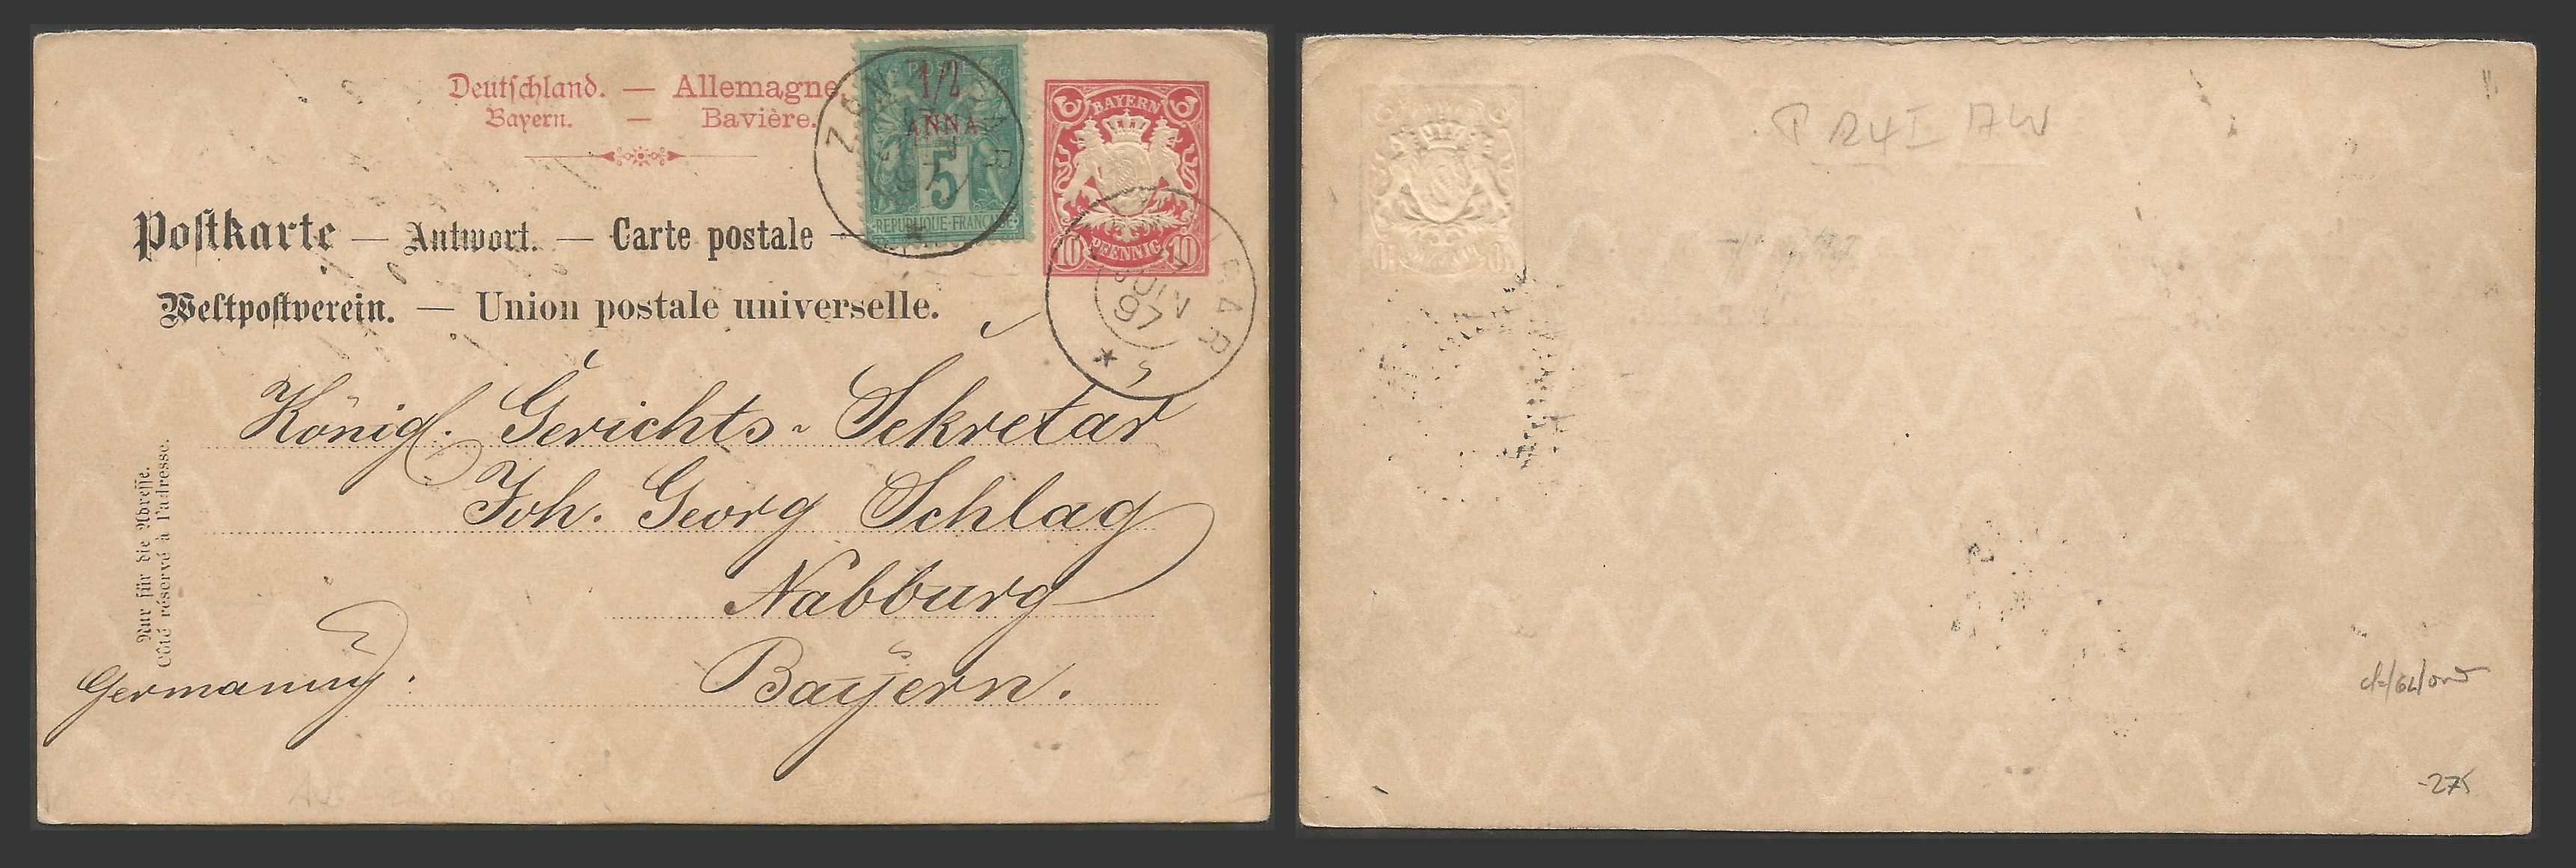 Deutschland. — Allemagne
Bayern. — Bavière.
POSTE
1/2
ANNA
5
REPUBLIQUE FRANÇAISE
BAYERN
10 PFENNIG 10
JUIN
97
Postkarte — Antwort. — Carte postale —
Weltpostverein. — Union postale universelle.
Königl. Gerichts-Sekretär
Joh. Georg Schlag
Nabburg
Bayern.
Germany.
Nur für die Adresse.
Côté réservé à l'adresse.
P 24 I AW
-275